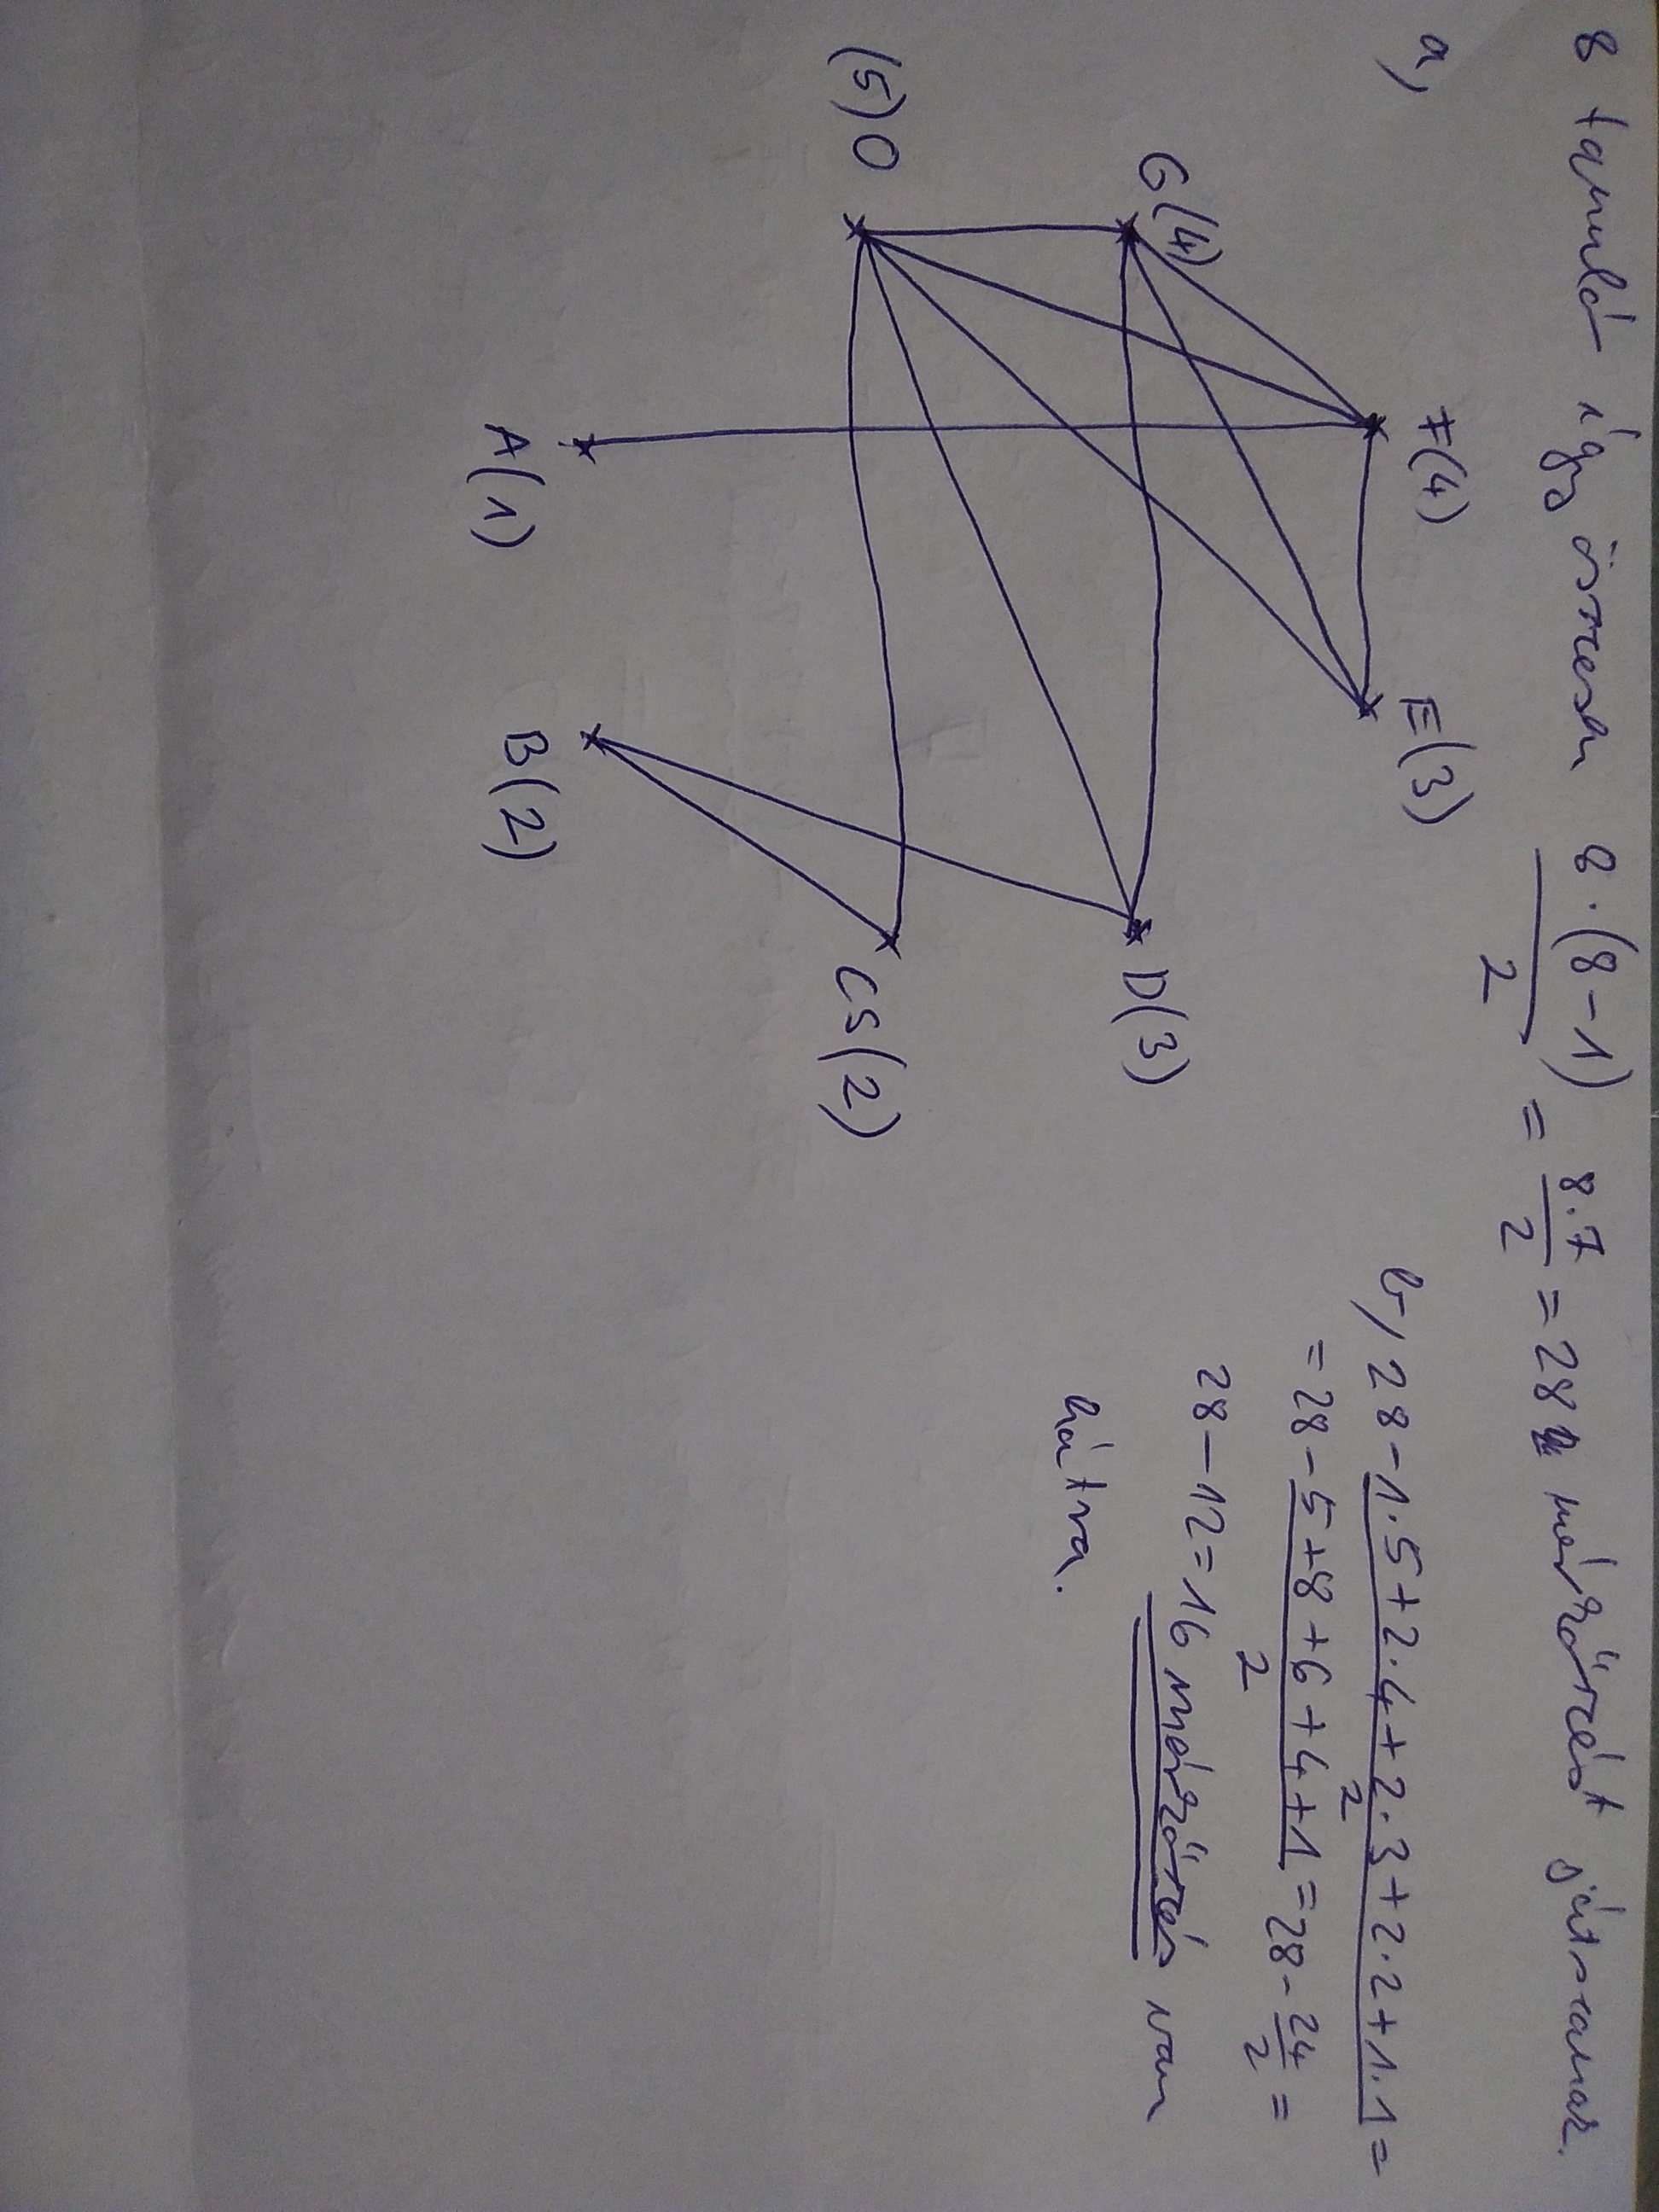 8 tanuló így összesen 8·(8-1)/2 = 8·7/2 = 28 mérkőzést játszanak.
a,
F(4) E(3)
G(4) D(3)
(5)O CS(2)
A(1) B(2)
b, 28 - (1·5+2·4+2·3+2·2+1·1)/2 =
= 28 - (5+8+6+4+1)/2 = 28 - 24/2 =
28-12=16 mérkőzés van
hátra.